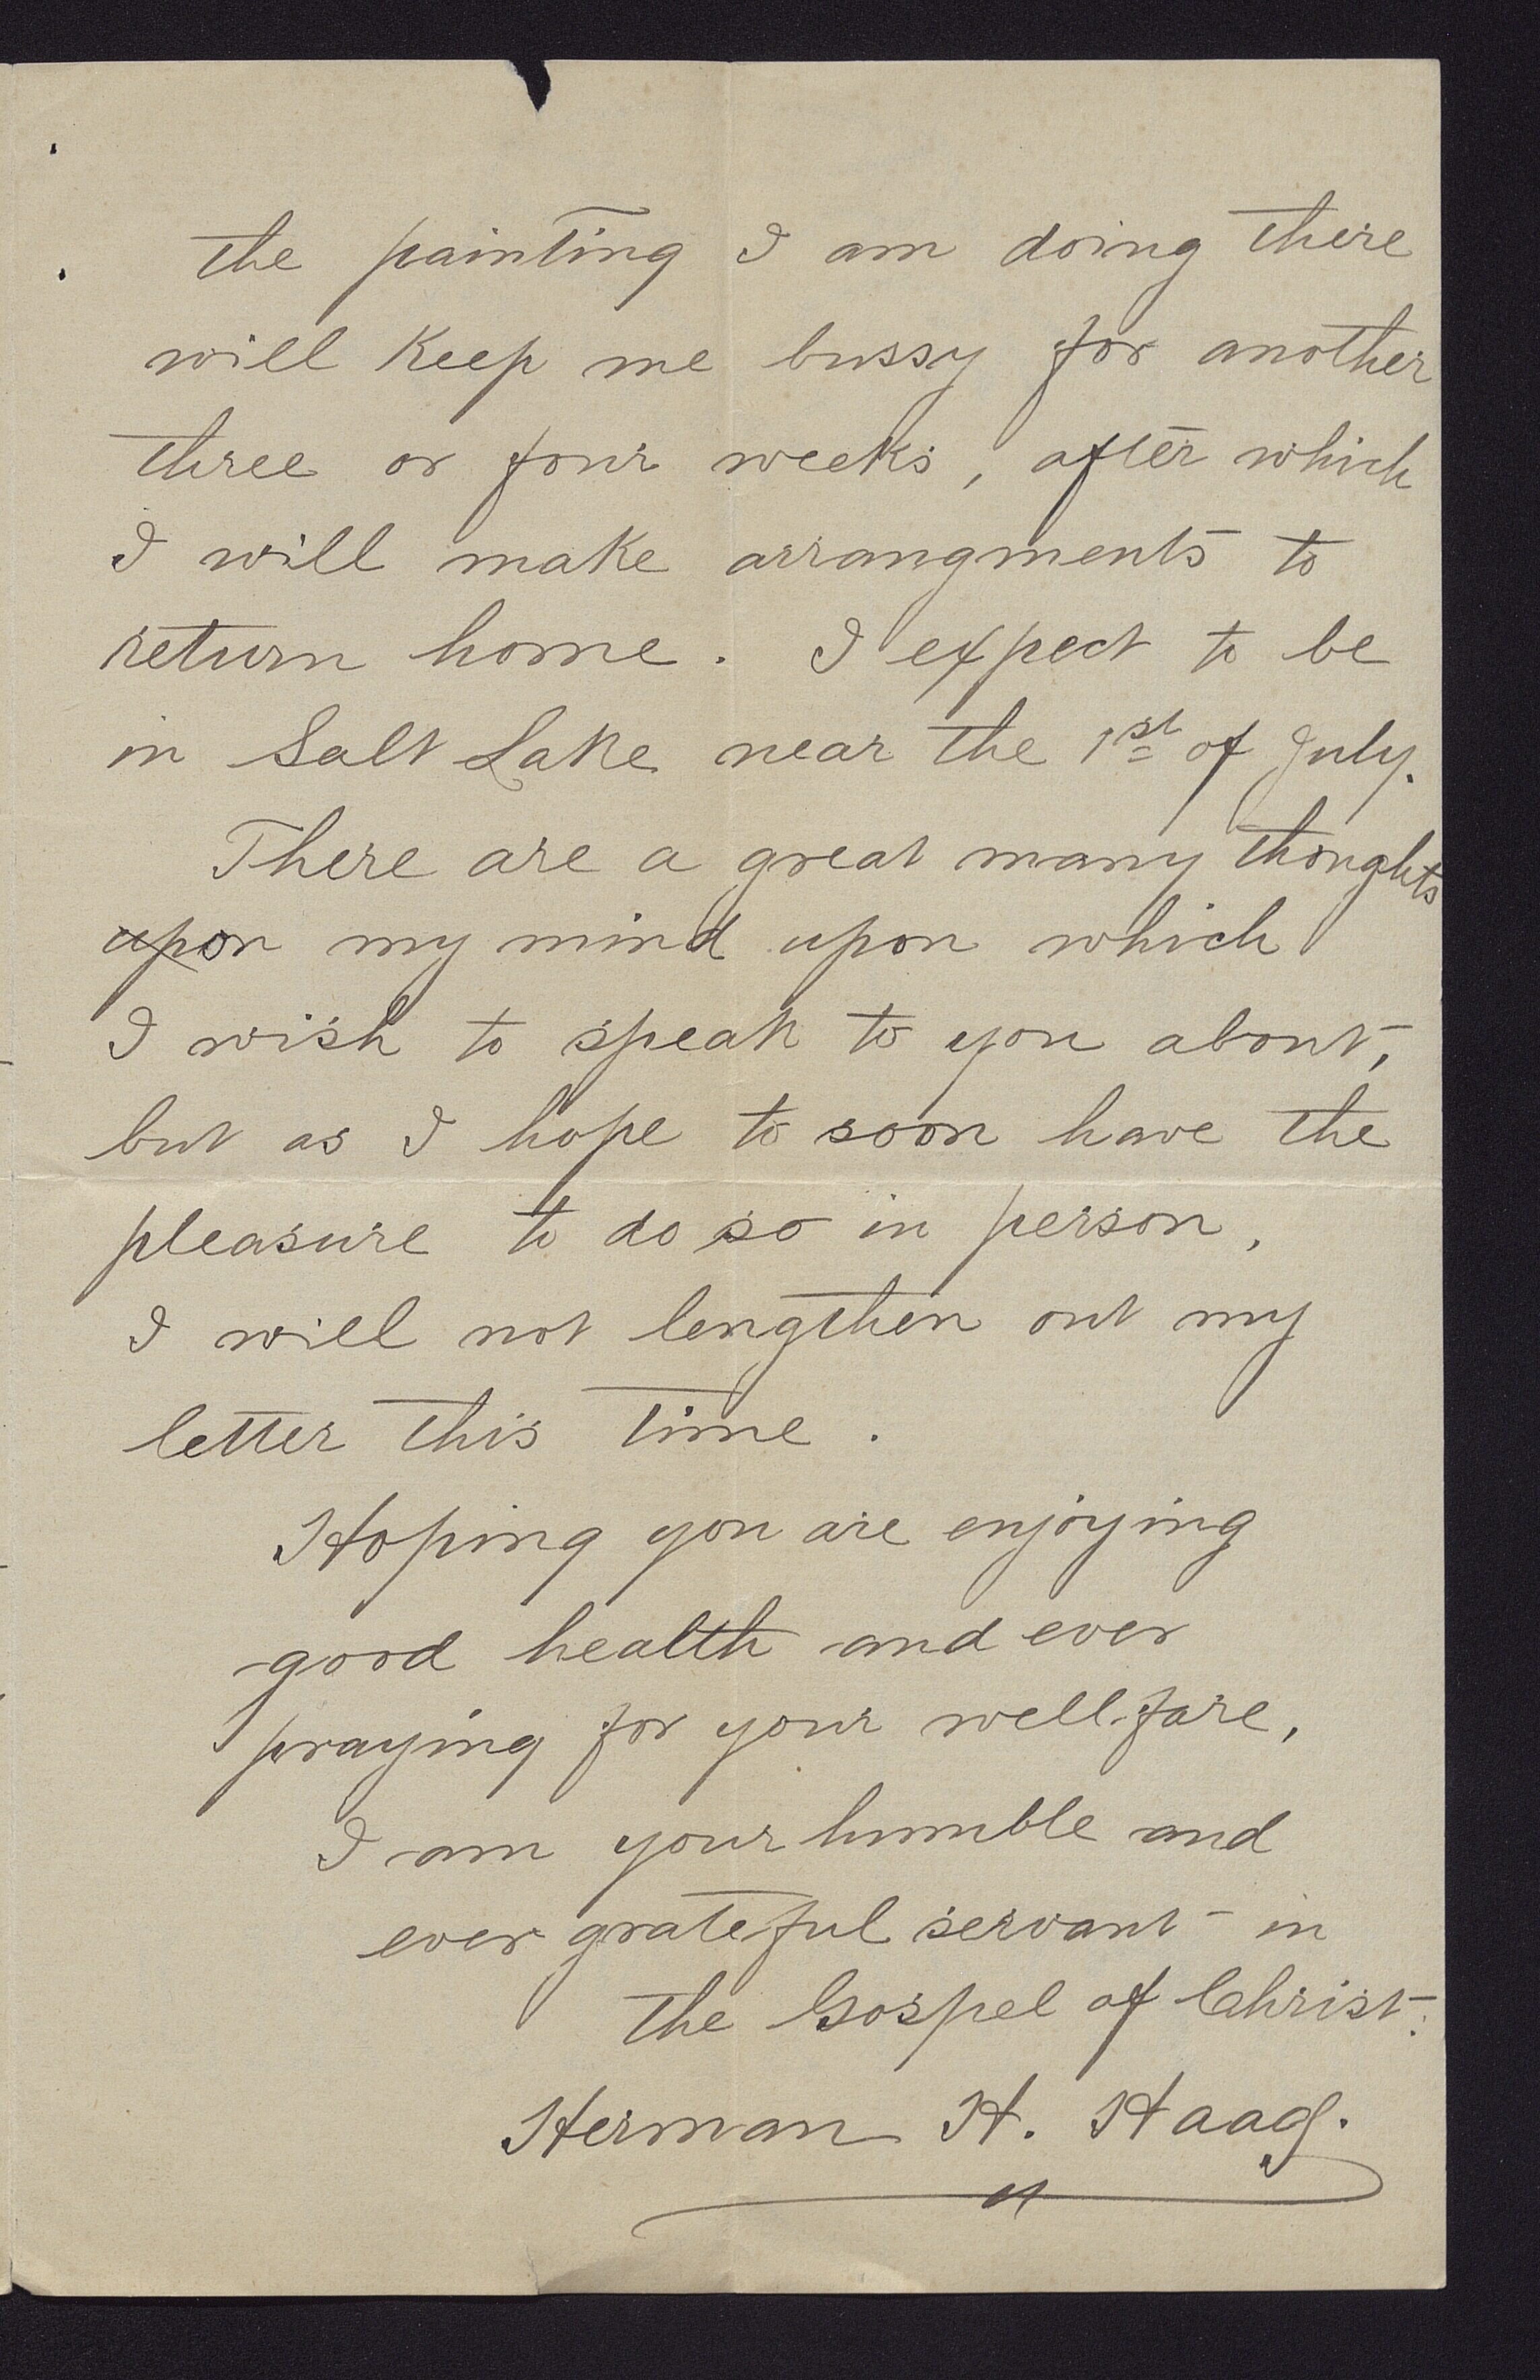 the painting I am doing there
will Keep me bussy for another
three or four weeks, after which
I will make arrangments to
return home. I expect to be
in Salt Lake near the 1st of July.
There are a great many thoughts
upon my mind upon which
I wish to speak to you about,
but as I hope to soon have the
pleasure to do so in person,
I will not lengthen out my
letter this time.
Hoping you are enjoying
good health and ever
praying for your wellfare,
I am your humble and
ever grateful servant in
the Gospel of Christ.
Herman H. Haag.